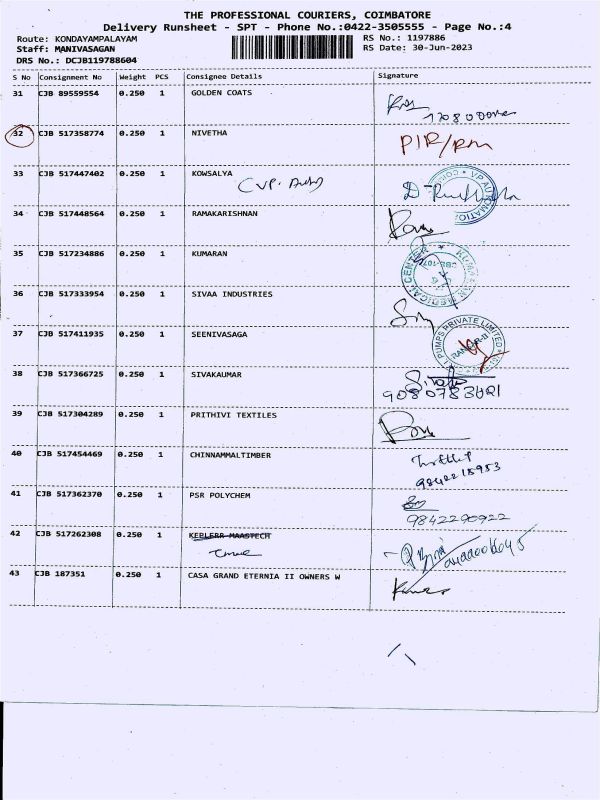 THE PROFESSIONAL COURIERS, COIMBATORE
Delivery Runsheet - SPT - Phone No.:0422-3505555 - Page No.:4
Route: KONDAYAMPALAYAM RS No.: 1197886
Staff: MANIVASAGAN RS Date: 30-Jun-2023
DRS No.: DCJB119788604
S No Consignment No Weight PCS Consignee Details Signature
31 CJB 89559554 0.250 1 GOLDEN COATS
32 CJB 517358774 0.250 1 NIVETHA
33 CJB 517447402 0.250 1 KOWSALYA
CVP.
34 CJB 517448564 0.250 1 RAMAKARISHNAN
35 CJB 517234886 0.250 1 KUMARAN
36 CJB 517333954 0.250 1 SIVAA INDUSTRIES
37 CJB 517411935 0.250 1 SEENIVASAGA
PUMPS PRIVATE LIMITED
38 CJB 517366725 0.250 1 SIVAKAUMAR
39 CJB 517304289 0.250 1 PRITHIVI TEXTILES
40 CJB 517454469 0.250 1 CHINNAMMALTIMBER
9842215953
41 CJB 517362370 0.250 1 PSR POLYCHEM
9842290922
42 CJB 517262308 0.250 1 KEBLERR MAASTECH
43 CJB 187351 0.250 1 CASA GRAND ETERNIA II OWNERS W